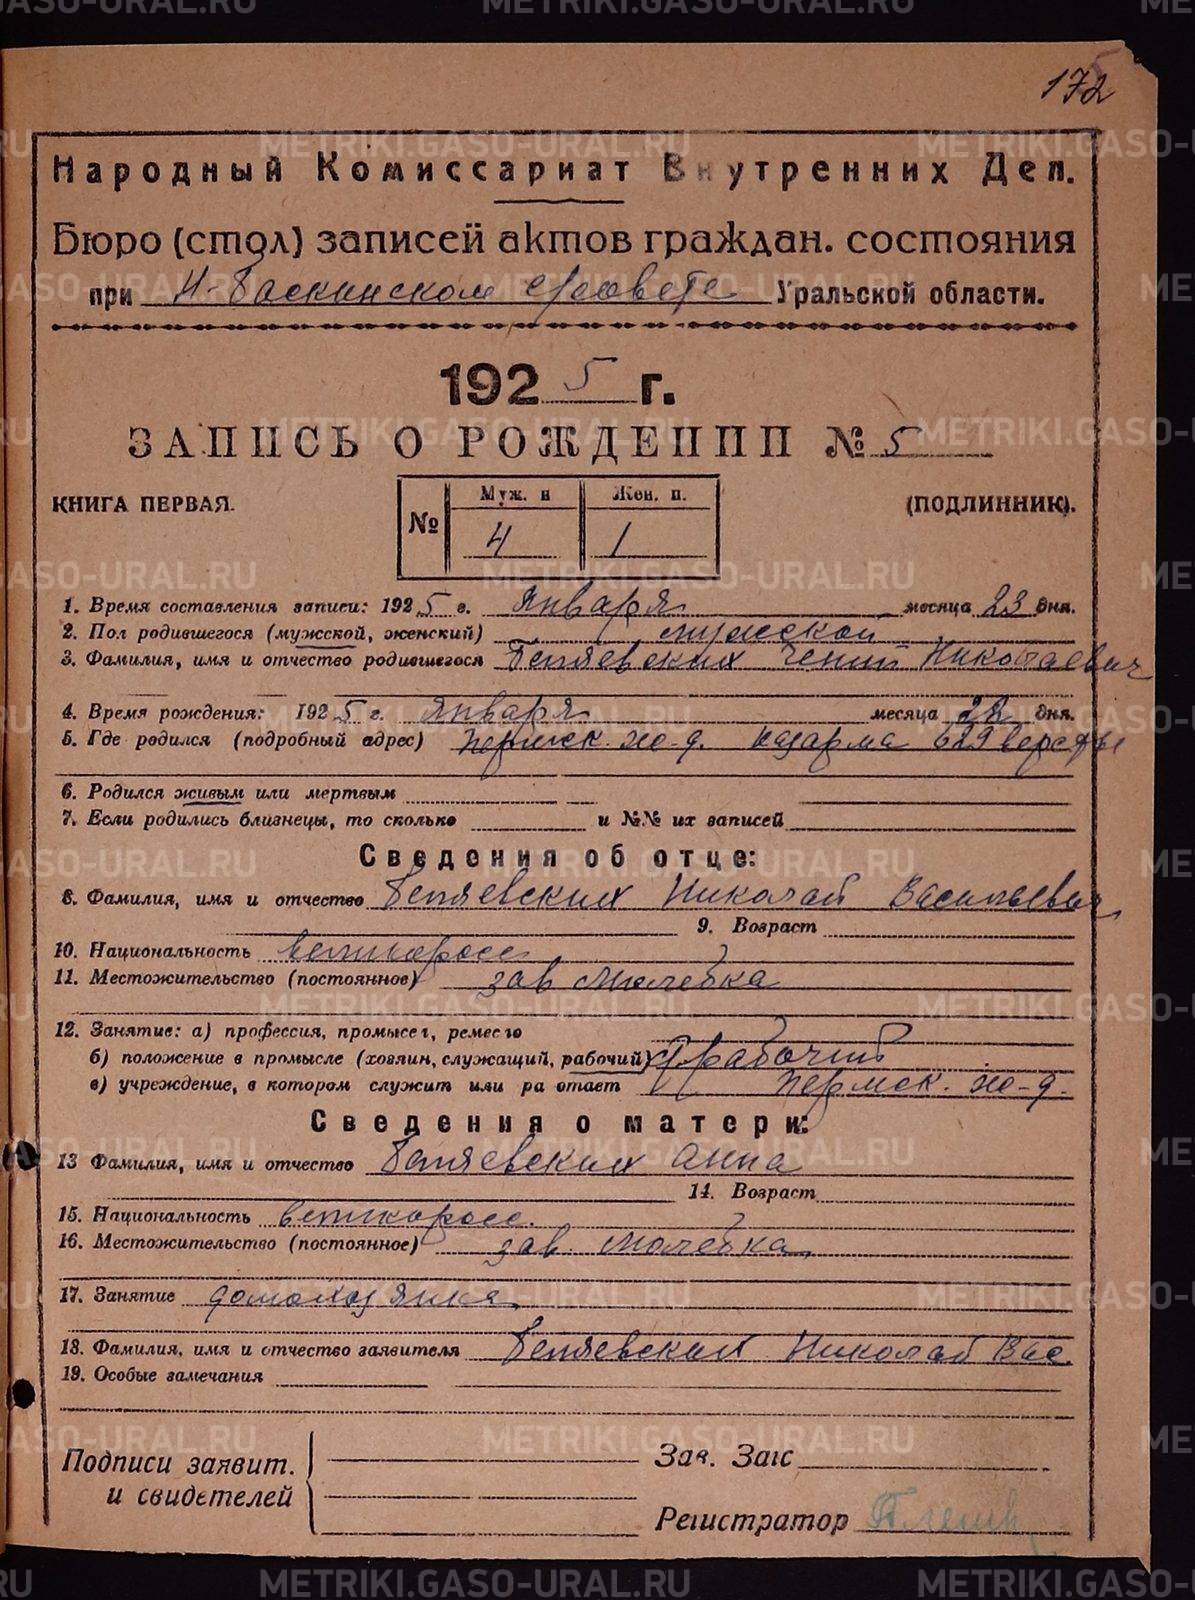 172
Народный Комиссариат Внутренних Дел.
Бюро (стол) записей актов граждан. состояния
при Н-Баскинском с/совете Уральской области.
1925 г.
ЗАПИСЬ О РОЖДЕНИИ № 5
КНИГА ПЕРВАЯ.
(ПОДЛИННИК).
№ Муж. п Жен. п.
4 1
1. Время составления записи: 1925 г. Января месяца 23 дня.
2. Пол родившегося (мужской, женский) мужской
3. Фамилия, имя и отчество родившегося Беляевских Гений Николаевич
4. Время рождения: 1925 г. Января месяца 22 дня.
5. Где родился (подробный адрес) Пермск. ж-д. казарма 629 версты
6. Родился живым или мертвым
7. Если родились близнецы, то сколько и №№ их записей
Сведения об отце:
8. Фамилия, имя и отчество Беляевских Николай Васильевич
9. Возраст
10. Национальность великоросс
11. Местожительство (постоянное) зав Молебка
12. Занятие: а) профессия, промысел, ремесло
б) положение в промысле (хозяин, служащий, рабочий) рабочий
в) учреждение, в котором служит или ра отает Пермск. ж-д.
Сведения о матери:
13 Фамилия, имя и отчество Беляевских Анна
14. Возраст
15. Национальность великоросс.
16. Местожительство (постоянное) зав. Молебка
17. Занятие домохозяйка
18. Фамилия, имя и отчество заявителя Беляевский Николай Вас.
19. Особые замечания
Подписи заявит.
и свидетелей
Зав. Загс
Регистратор
METRIKI.GASO-URAL.RU